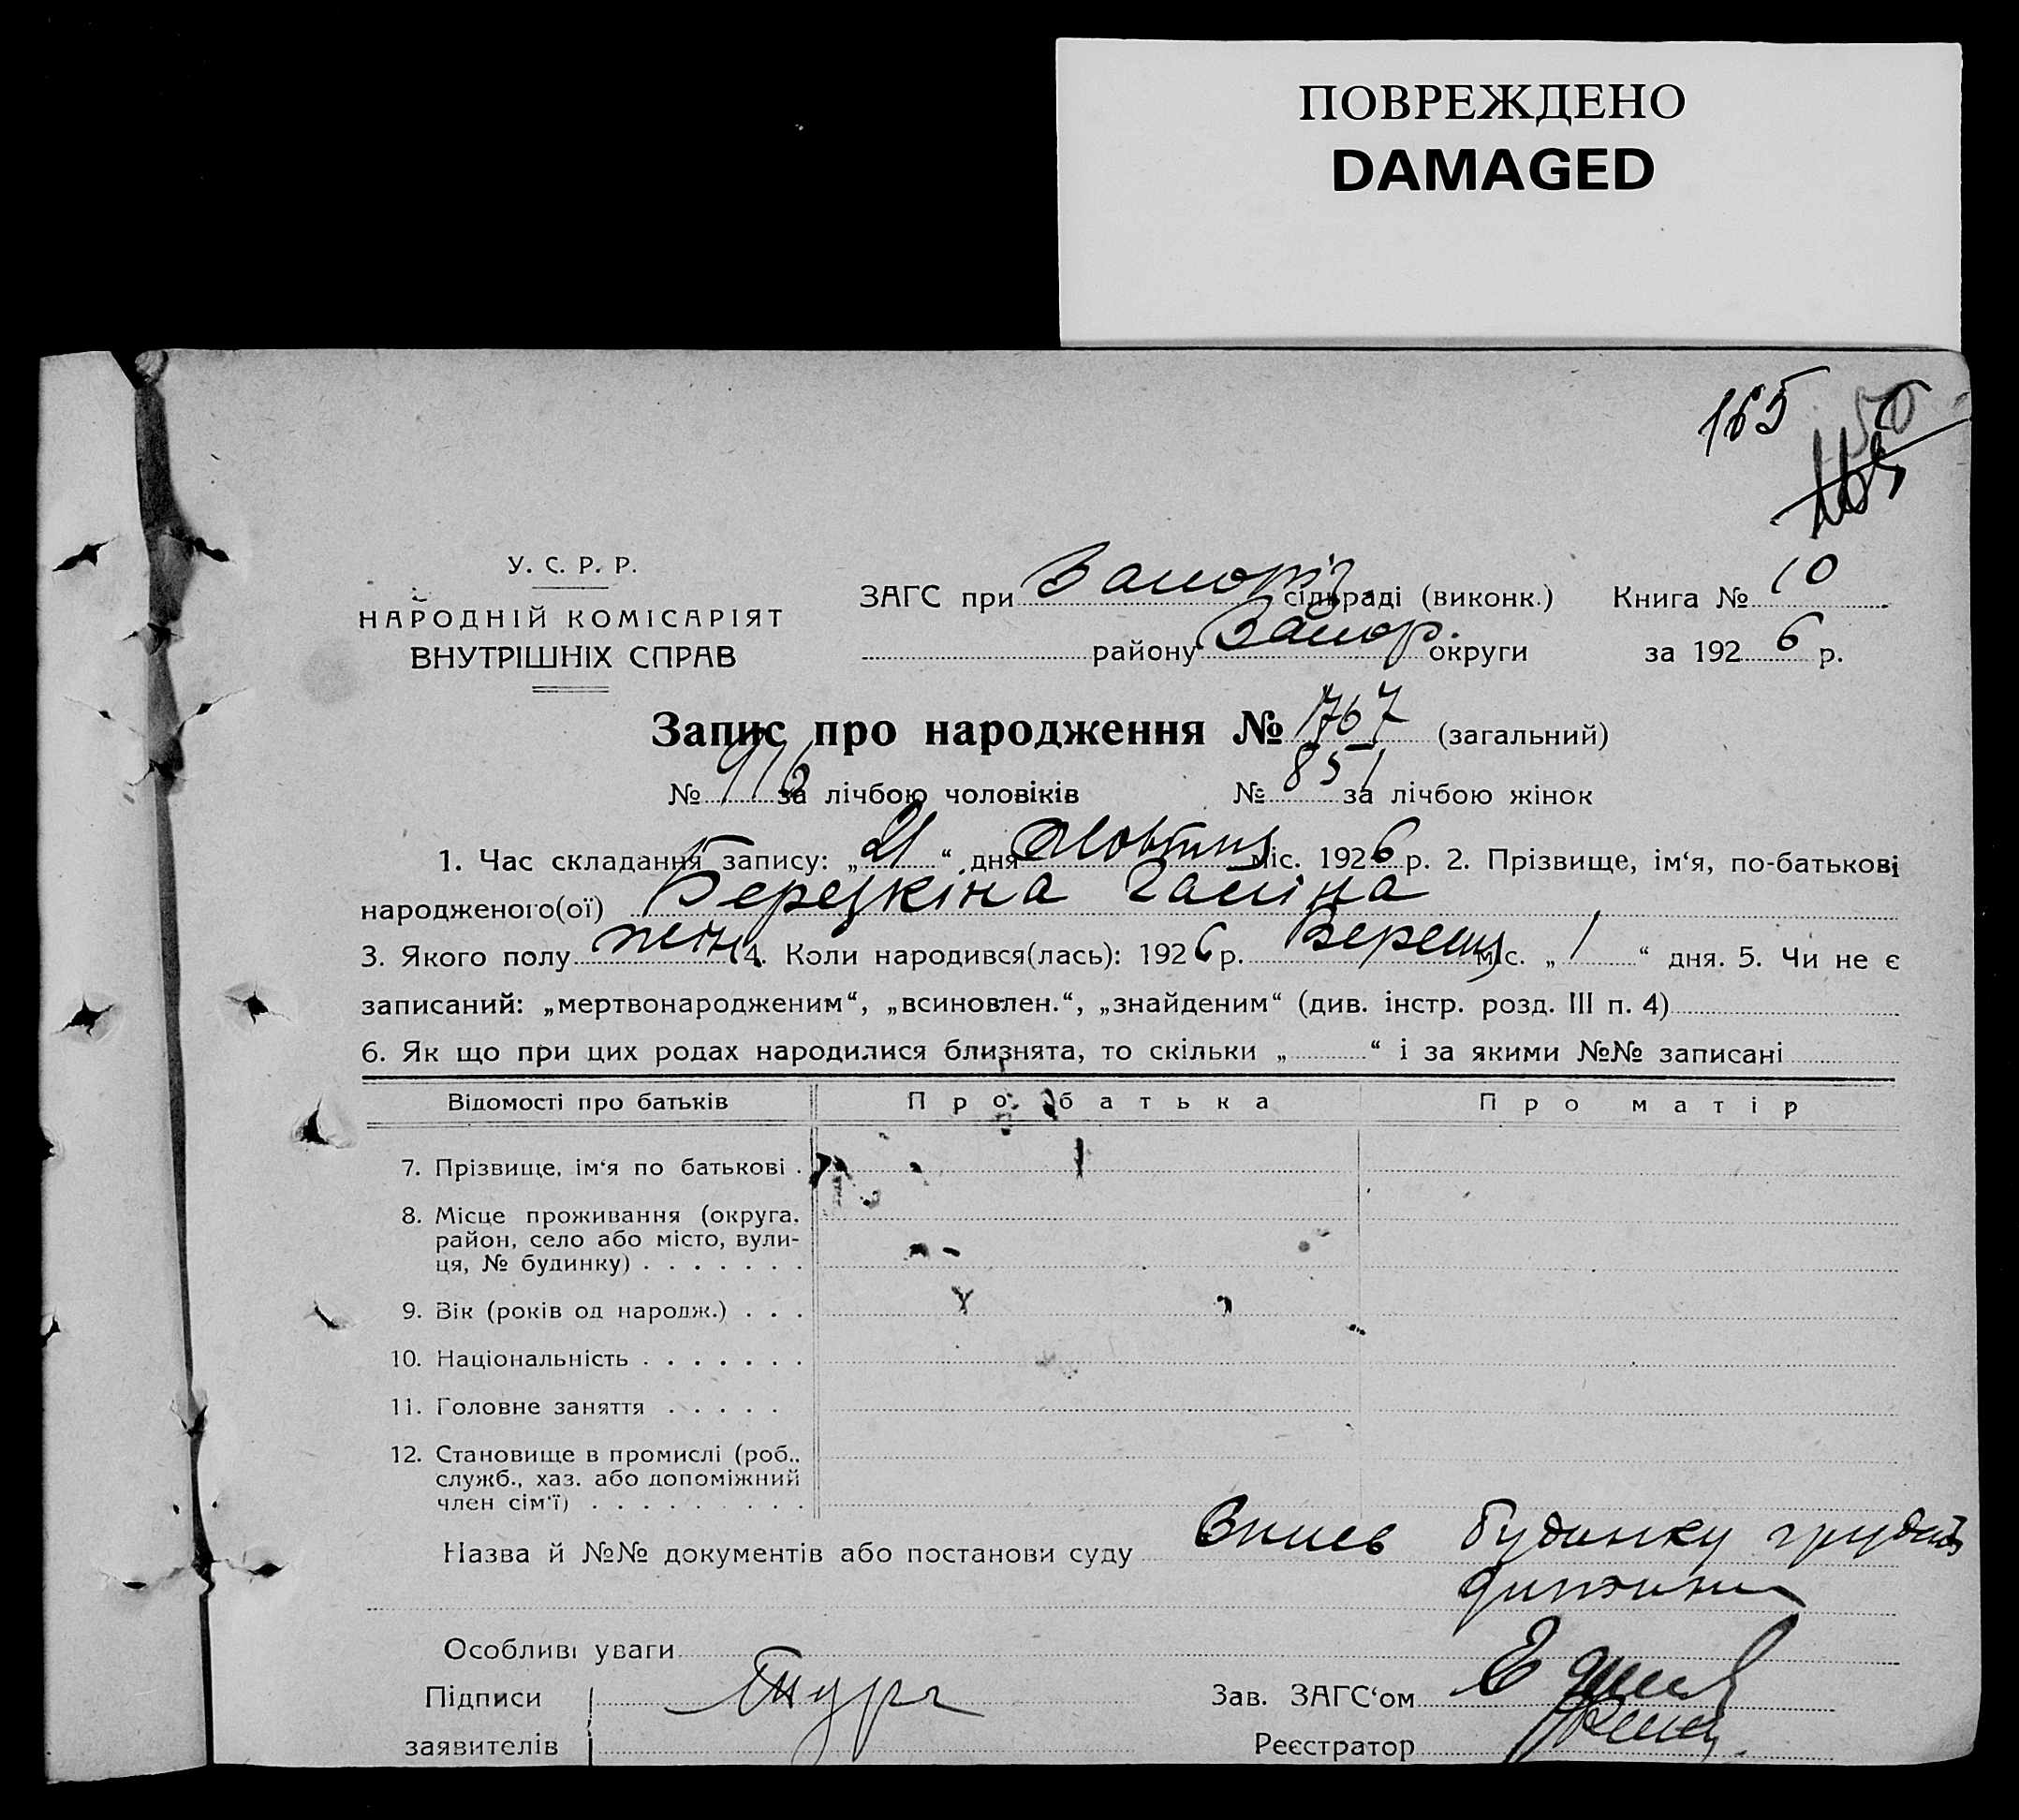 ПОВРЕЖДЕНО
DAMAGED
165
50
165
У. С. Р. Р.
НАРОДНІЙ КОМІСАРІЯТ
ВНУТРІШНІХ СПРАВ
ЗАГС при Запоріз. сільраді (виконк.) Книга № 10
району Запор. округи за 1926 р.
Запис про народження № 1767 (загальний)
№ 916 за лічбою чоловіків № 851 за лічбою жінок
1. Час складання запису: „21“ дня Жовтня міс. 1926 р. 2. Прізвище, ім‘я, по-батькові
народженого(ої) Березкіна Галіна
3. Якого полу жін 4. Коли народився(лась): 1926 р. Верешня міс. „1“ дня. 5. Чи не є
записаний: „мертвонародженим“, „всиновлен.“, „знайденим“ (див. інстр. розд. III п. 4)
6. Як що при цих родах народилися близнята, то скільки „ “ і за якими №№ записані
Відомості про батьків Про батька Про матір
7. Прізвище, ім‘я по батькові .
8. Місце проживання (округа,
район, село або місто, вули-
ця, № будинку) . . . . . . .
9. Вік (років од народж.) . . .
10. Національність . . . . . . .
11. Головне заняття . . . . .
12. Становище в промислі (роб.,
служб., хаз. або допоміжний
член сім‘ї) . . . . . . . . .
Назва й №№ документів або постанови суду будинку грудної
дитини
Особливі уваги
Підписи Зав. ЗАГС‘ом
заявителів Реєстратор